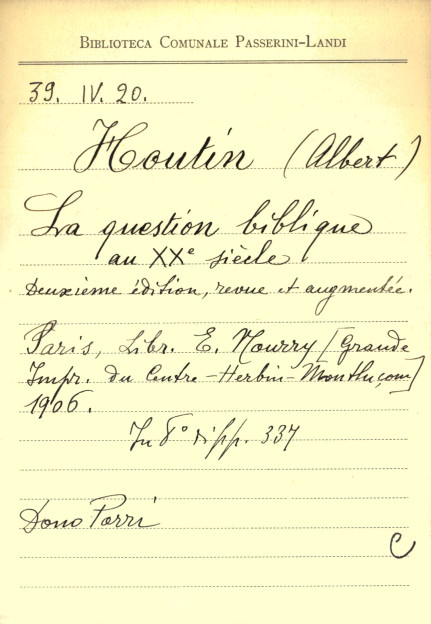 BIBLIOTECA COMUNALE PASSERINI-LANDI
39. IV. 20.
Houtin (Albert)
La question biblique
au XXe siècle
Deuxième édition, revue et augmentée.
Paris, Libr. E. Nourry [Grande
Impr. du Centre-Herbin-Montluçon]
1906.
In 8° di pp. 337
Dono Porri
C